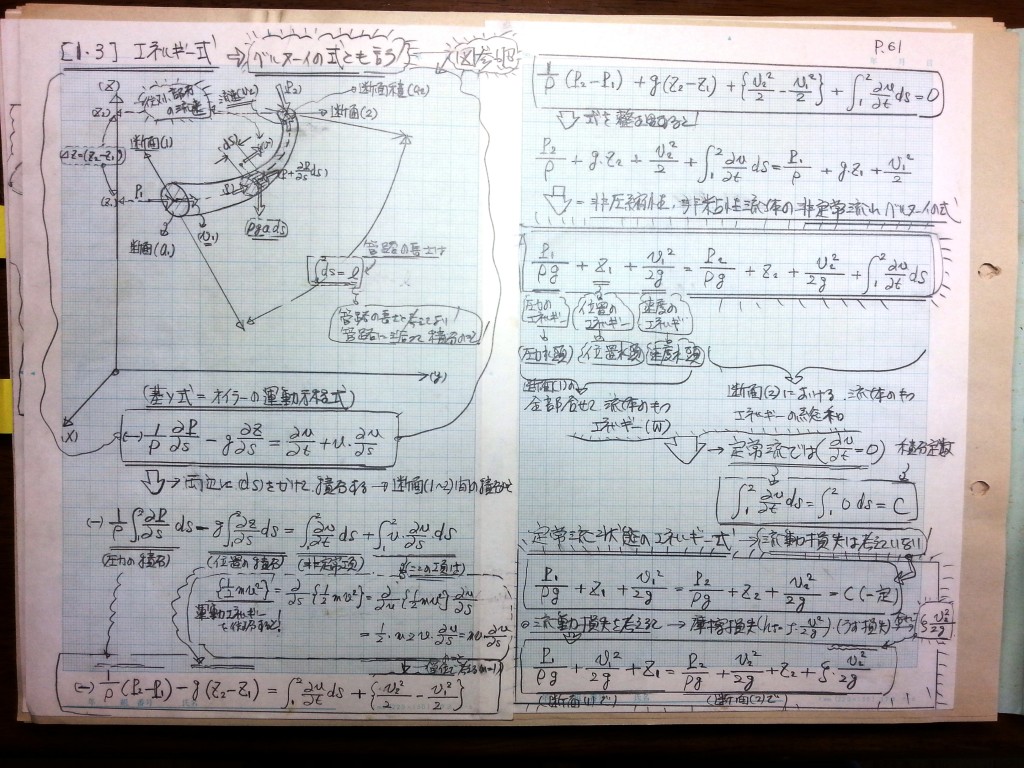 [1.3] エネルギー式 ⇒ ベルヌイの式とも言う 図参照
(Z)
(Z₂)
流速(v₂)
P₂
断面積(a₂)
断面(2)
断面(1)
ΔZ=(Z₂-Z₁)
(Z₁)
P₁
断面(a₁)
(v₁)
ρgads
管路の長さは
∫ds=l
管路の長さと考えてよい
管路に沿って積分のこと
(y)
(X)
(基本式=オイラーの運動方程式)
(-) 1/ρ ∂P/∂s - g ∂z/∂s = ∂v/∂t + v・∂v/∂s
→ 両辺に(ds)をかけて積分する → 断面(1~2)間の積分で
(-) 1/ρ ∫₁² ∂P/∂s ds - g∫₁² ∂z/∂s ds = ∫₁² ∂v/∂t ds + ∫₁² v ∂v/∂s ds
(圧力の積分) (位置の積分) (非定常項)
{1/2 mv²} = ∂/∂s {1/2 mv²} = ∂/∂v {1/2 mv²} ∂v/∂s
運動エネルギー
= 1/2・m 2v・∂v/∂s = mv ∂v/∂s
(-) 1/ρ (P₂-P₁) - g(Z₂-Z₁) = ∫₁² ∂v/∂t ds + {v₂²/2 - v₁²/2}
P.61
1/ρ (P₂-P₁) + g(Z₂-Z₁) + {v₂²/2 - v₁²/2} + ∫₁² ∂v/∂t ds = 0
式を整理すると
P₂/ρ + g・Z₂ + v₂²/2 + ∫₁² ∂v/∂t ds = P₁/ρ + g・Z₁ + v₁²/2
= 非圧縮性、非粘性流体の非定常流れ ベルヌイの式
P₁/ρg + Z₁ + v₁²/2g = P₂/ρg + Z₂ + v₂²/2g + ∫₁² ∂v/∂t ds
圧力のエネルギー 位置のエネルギー 速度のエネルギー
圧力水頭 位置水頭 速度水頭
断面(1)の
全部合せて 流体のもつ
エネルギー(W)
断面(2)における 流体のもつ
エネルギーの総和
→ 定常流では(∂v/∂t=0) 積分定数
∫₁² ∂v/∂t ds = ∫₁² 0 ds = C
定常流状態のエネルギー式 → 流動損失は考えない
P₁/ρg + Z₁ + v₁²/2g = P₂/ρg + Z₂ + v₂²/2g = C (一定)
⊙流動損失を考えると → 摩擦損失
ζ v₂²/2g
P₁/ρg + v₁²/2g + Z₁ = P₂/ρg + v₂²/2g + Z₂ + ζ・v₂²/2g
(断面(1)で) (断面(2)で)